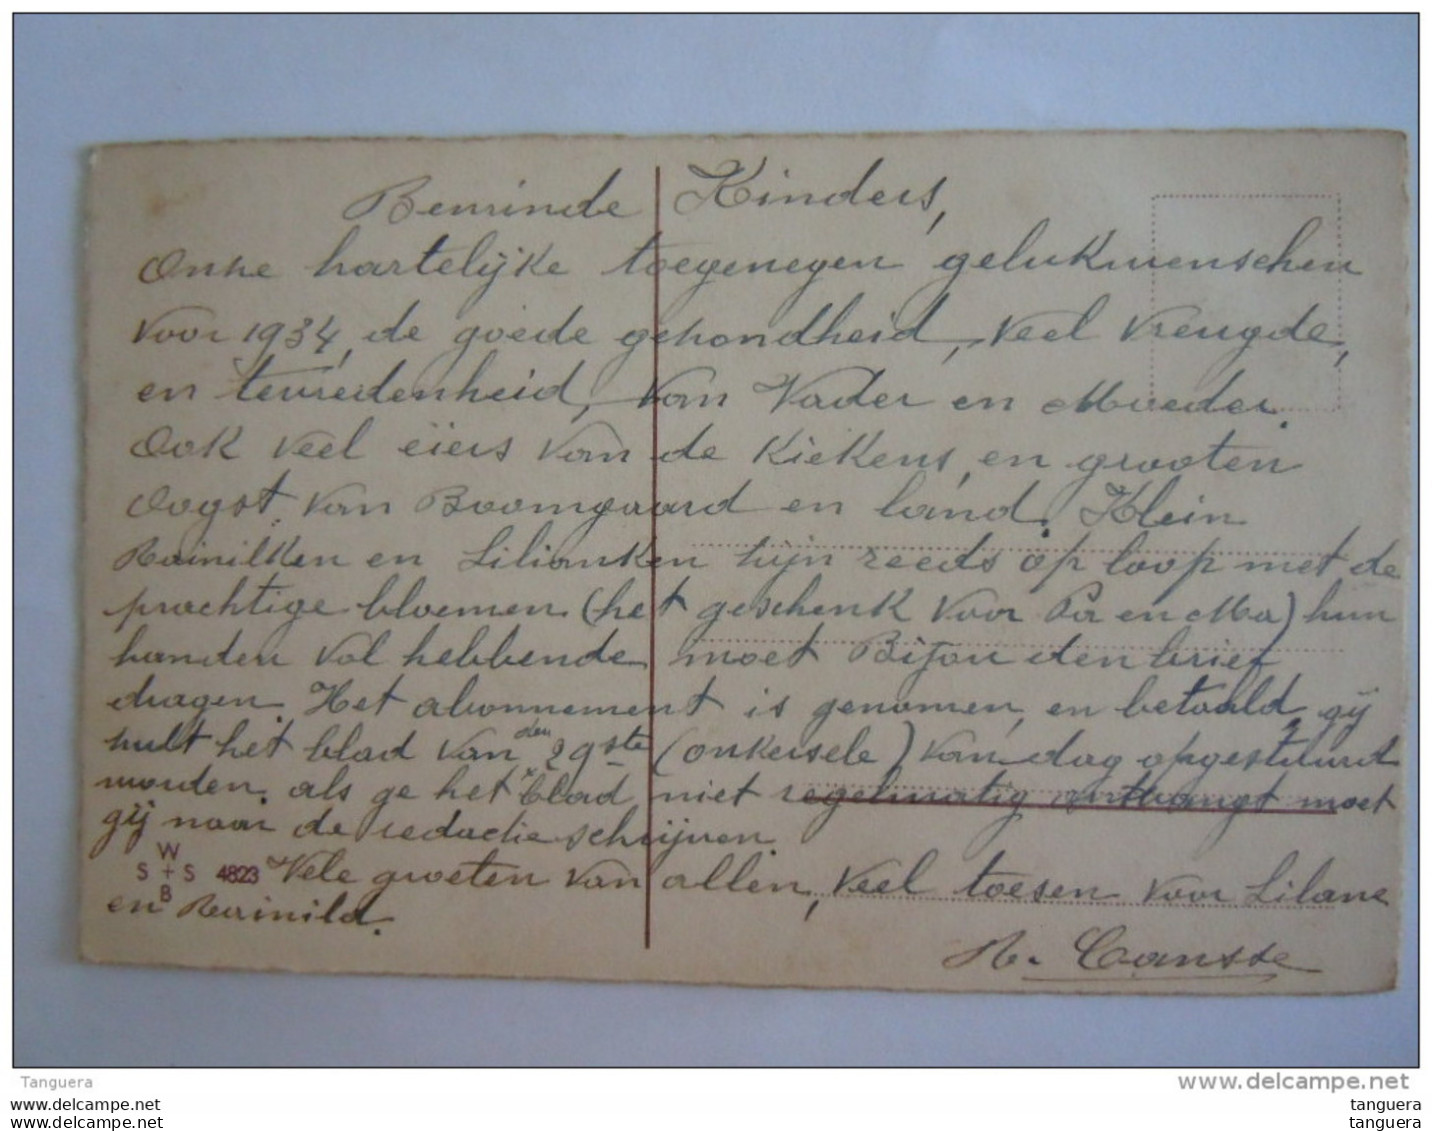 Beminde Kinders,
Onze hartelijke toegenegen gelukwenschen
voor 1934, de goede gezondheid, veel vreugde,
en tevredenheid, van Vader en Moeder.
Ook veel eiers van de Kiekens, en grooten
Oogst van Boomgaard en land. Klein
Rainilken en Lilianken zijn reeds op loop met de
prachtige bloemen (het geschenk voor Pa en Ma) hun
handen vol hebbende moet Bijou den brief
dragen. Het abonnement is genomen, en betaald, gij
zult het blad van den 29ste (onkersele) van dag opgestuurd
worden. als ge het blad niet regelmatig ontvangt moet
gij naar de redactie schrijven.
W
S + S 4823
B
Vele groeten van allen, veel toesen voor Lilane
en Rainild.
Cansse
Tanguera
www.delcampe.net
tanguera
tanguera
tanguera
tanguera